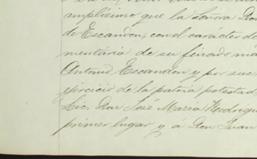 amplísimo que la Señora Do
de Escandon, con el carácter de
mentaria de su finado ma
Antonio Escandon y por su
ejercicio de la patria potestad
Lic. Don José María Rodrigu
primer lugar y á Don Juan